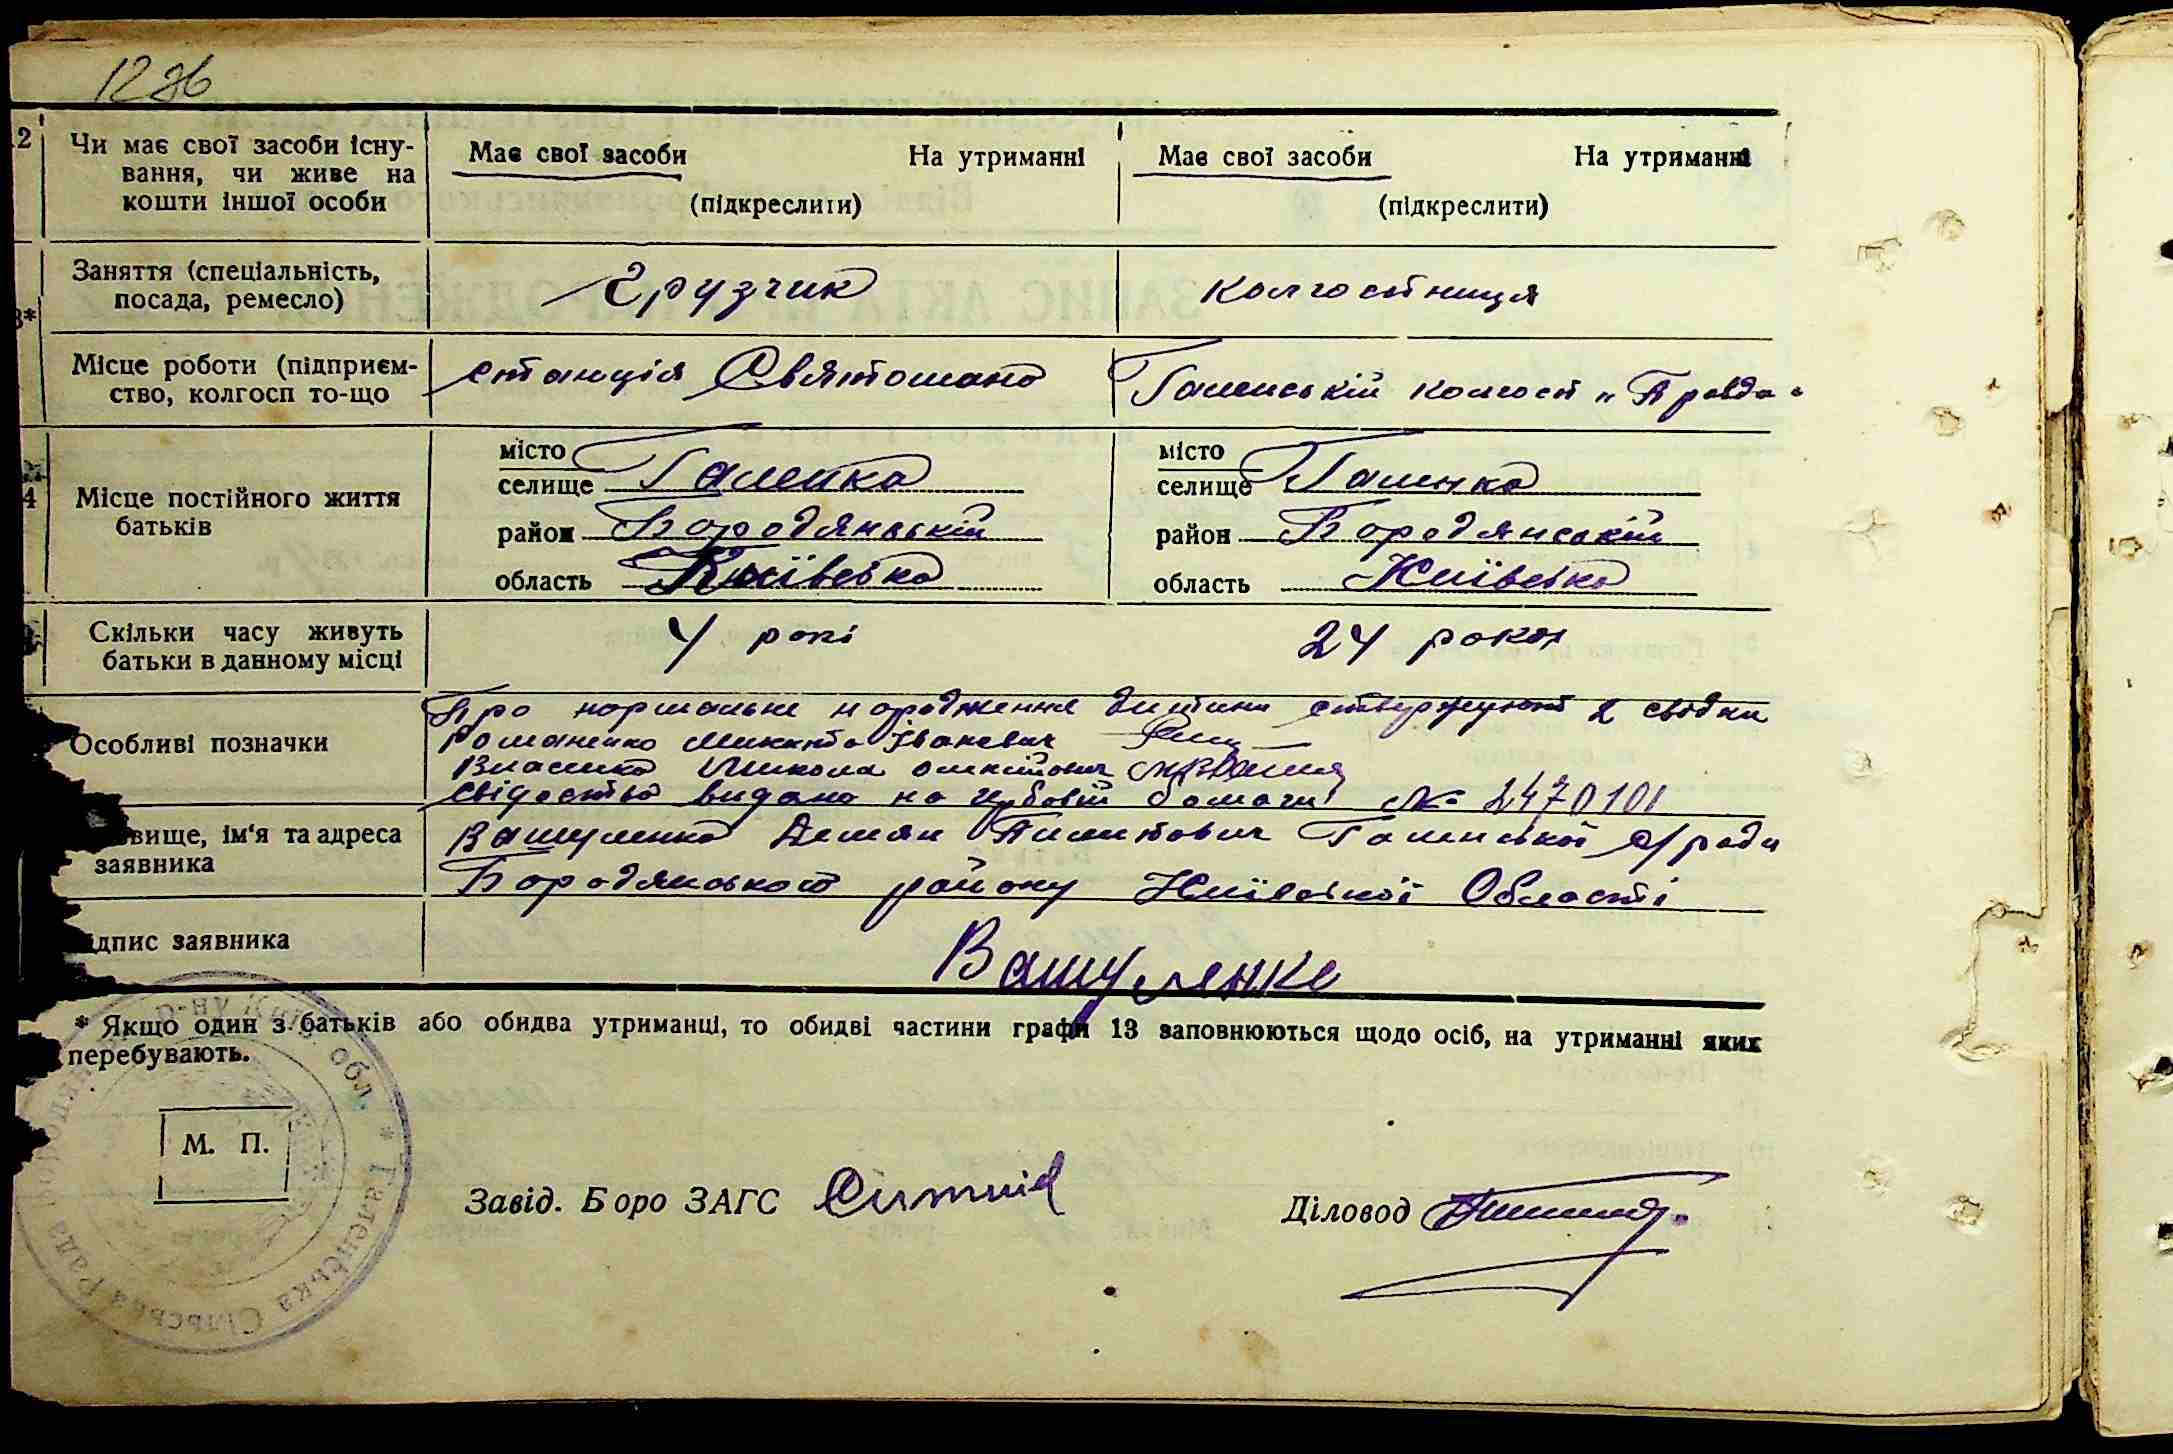 12 зб
12
Чи має свої засоби існу-
вання, чи живе на
кошти іншої особи
Має свої засоби На утриманні
(підкреслити)
Має свої засоби На утриманні
(підкреслити)
3*
Заняття (спеціальність,
посада, ремесло)
Грузчик
Колгостниця
Місце роботи (підприєм-
ство, колгосп то-що
станція Святошано
Галенській колгост „Правда"
4
Місце постійного життя
батьків
місто
селище Галенка
район Бородянській
область Київська
місто
селище Галенка
район Бородянській
область Київська
Скільки часу живуть
батьки в данному місці
4 рокі
24 рока
Особливі позначки
Про нормальне народження дитини ствержують 2 свідки
Романенко Микита Іванович
Власенко Микола
свідоство видано на гербовій бомазі № 2470101
вище, ім'я та адреса
заявника
Вашуленко Демян Пилипович Галенської с/ради
Бородянського району Київської Області
ідпис заявника
Вашуленко
* Якщо один з батьків або обидва утриманці, то обидві частини графи 13 заповнюються щодо осіб, на утриманні яких
перебувають.
р-ну Київ. обл. * Галенська Сільська Рада
М. П.
Завід. Боро ЗАГС
Діловод